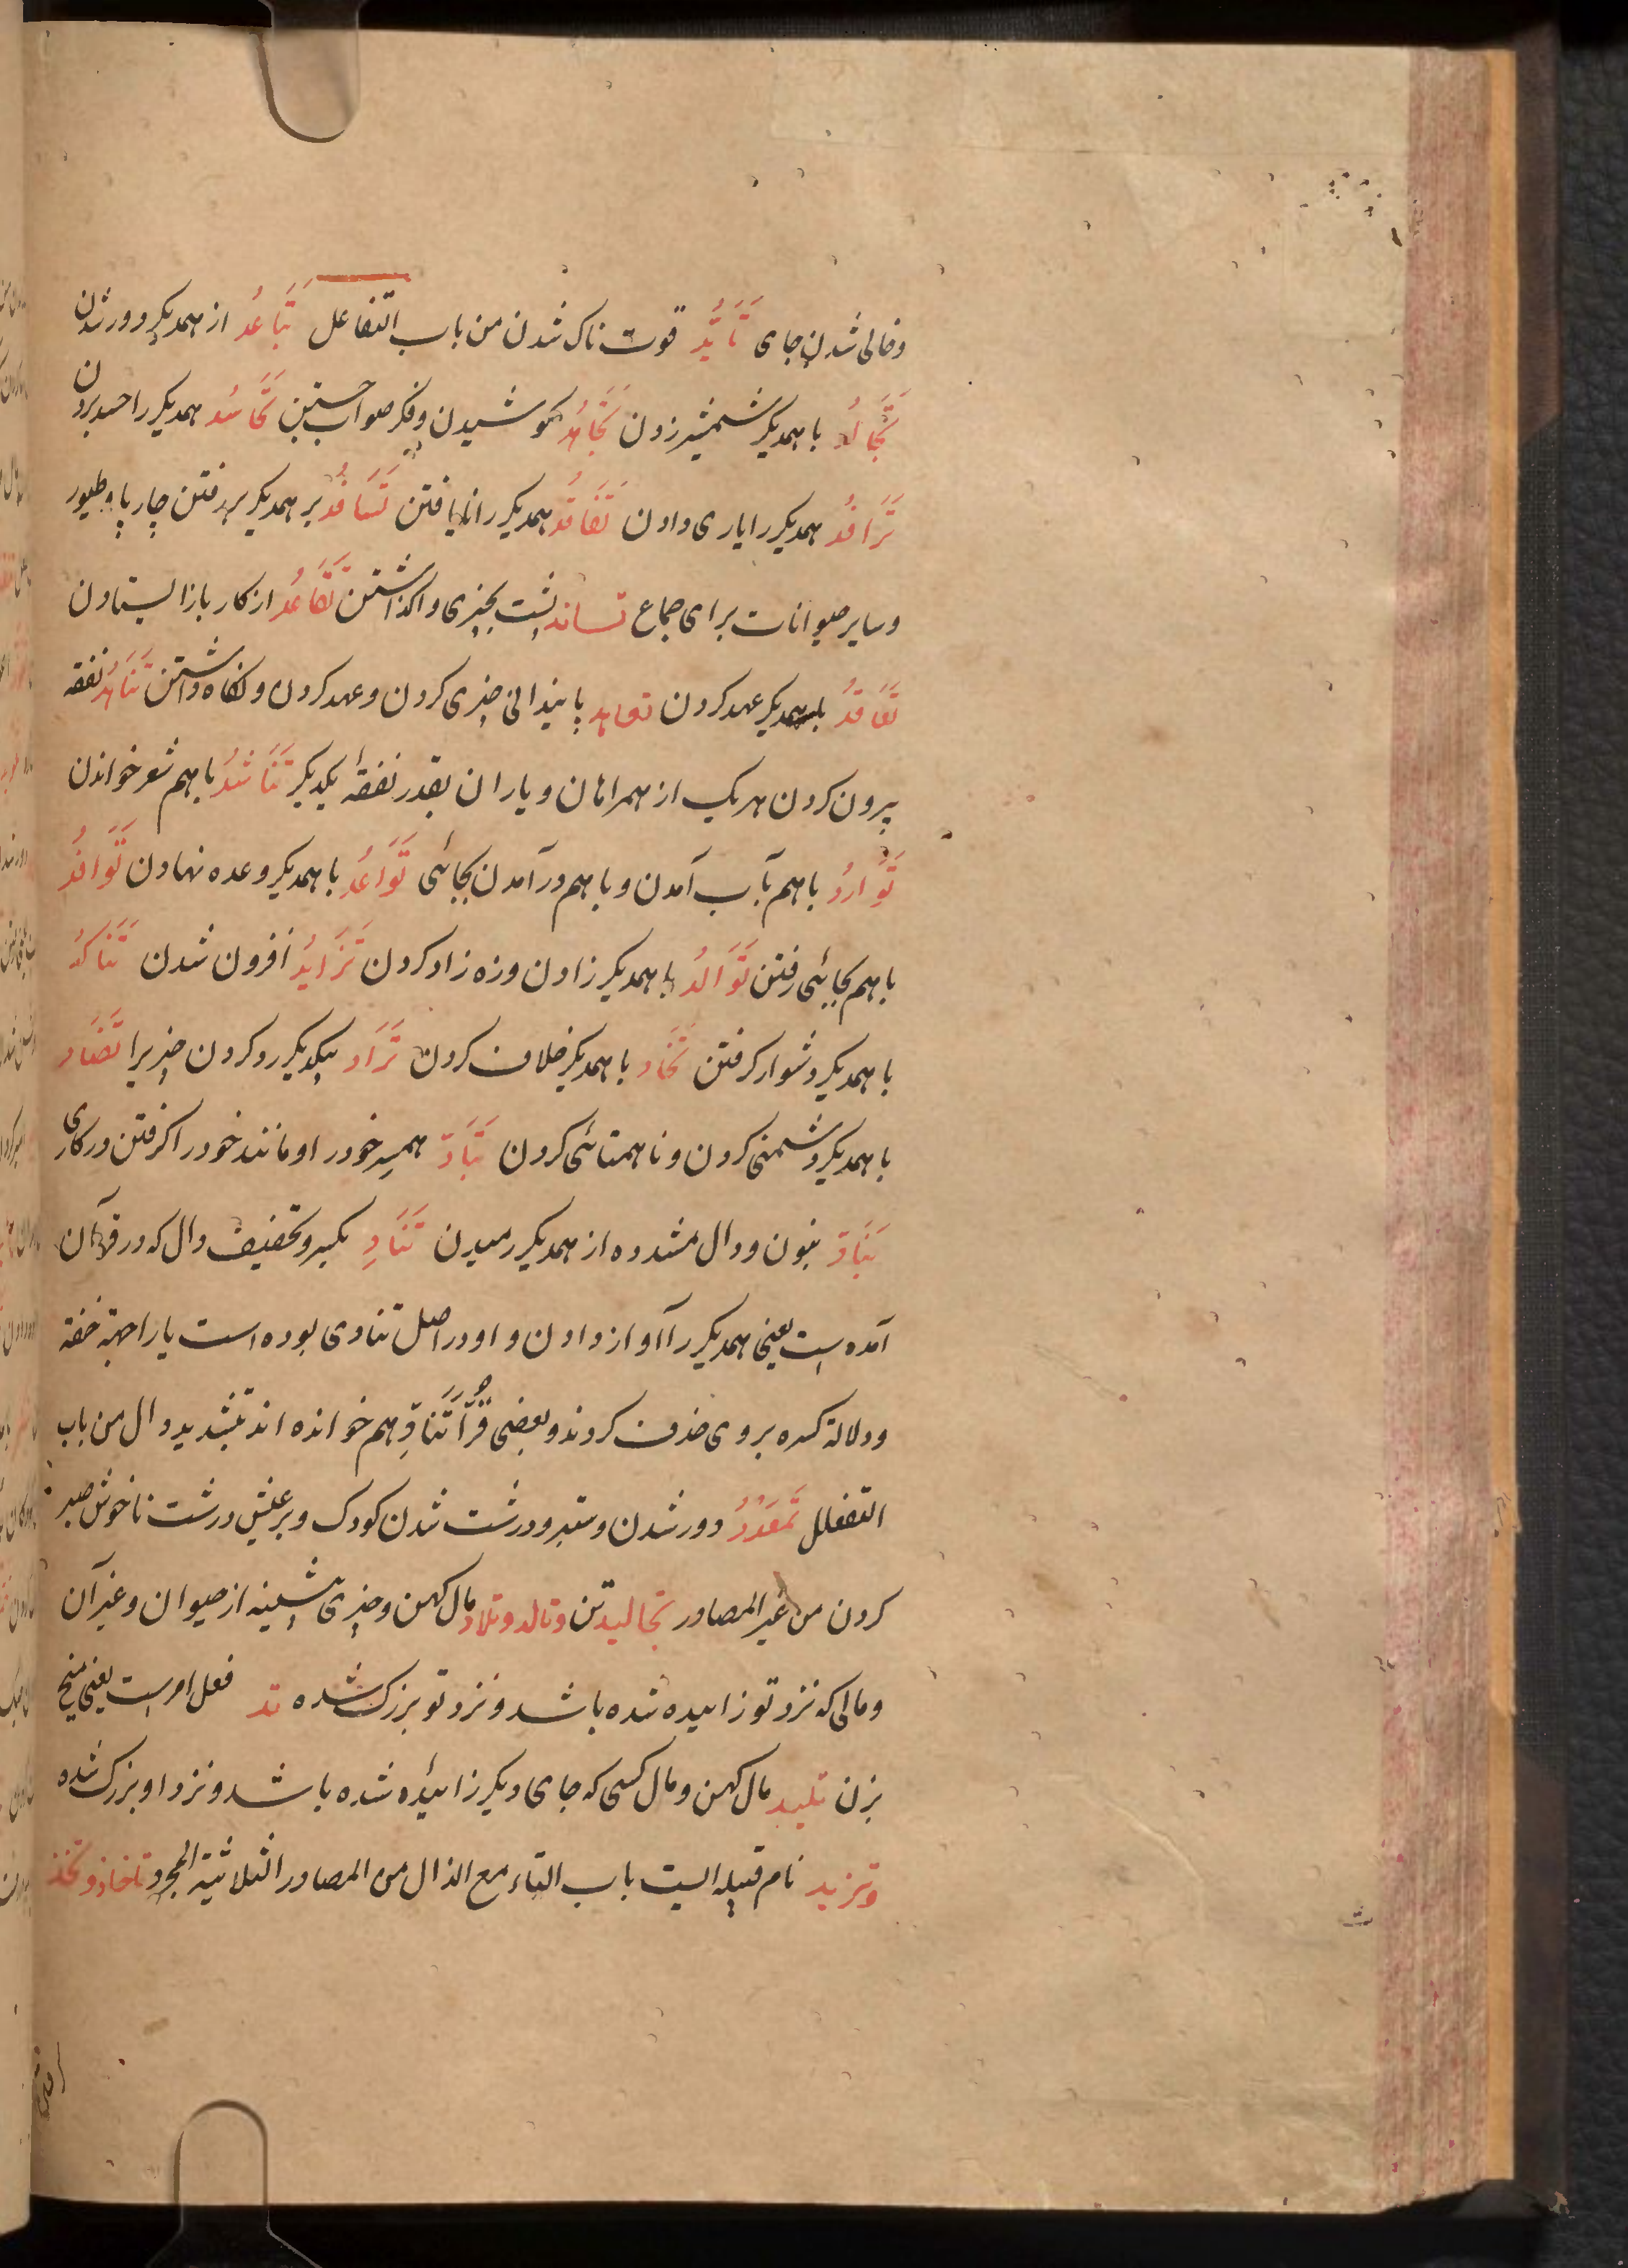 و خالی شدن جای تَأَیُّد قوت ناک شدن من باب التفاعل تَبَاعُد از همدیکر دور شدن
تَجَالُد با همدیکر شمشیر زدن تَجَاهُد کوشیدن و فکر صواب جستن تَحَاسُد همدیکر را حسد بردن
تَرَافُد همدیکر را یاری دادن تَفَاقُد همدیکر را نایافتن تَسَافُد بر همدیکر بر رفتن چارپا و طیور
و سایر حیوانات برای جماع تساند پشت بچیزی واکذاشتن تَقَاعُد از کار باز ایستادن
تَعَاقُد با همدیکر عهد کردن تعاهد پایندانی چیزی کردن و عهد کردن و نکاه داشتن تَنَاهُد نفقه
بیرون کردن هر یک از همراهان و یاران بقدر نفقهٔ یکدیکر تَنَاشُد با هم شعر خواندن
تَوَارُد با هم بآب آمدن و با هم در آمدن بجائی تَوَاعُد با همدیکر وعده نهادن تَوَافُد
با هم بجائی رفتن تَوَالُد با همدیکر زادن و زه زاد کردن تَزَایُد افزون شدن تَنَاکُد
با همدیکر دشوار کرفتن تَحَاد با همدیکر خلاف کردن تَرَاد بیکدیکر رد کردن چیزیرا تَضَاد
با همدیکر دشمنی کردن و ناهمتائی کردن تَبَادّ همسر خود را و مانند خود را کرفتن در کاری
تَنَادّ بنون و دال مشدده از همدیکر رمیدن تَنَادِ بکسر و تخفیف دال که در قرآن
آمده است یعنی همدیکر را آواز دادن و او در اصل تنادی بوده است یا را جهة خفة
و دلالة کسره بر وی حذف کردند و بعضی قُرّا تَنَادِّ هم خوانده اند بتشدید دال من باب
التفعلل تَمَعْدُد دور شدن و ستبر و درشت شدن کودک و بر عیش درشت ناخوش صبر
کردن من غیر المصادر تجالید تن و تالد و تلاد مال کهن و چیزی پیشینه از حیوان و غیر آن
و مالی که نزد تو زاییده شده باشد و نزد تو بزرک شده تد فعل امر است یعنی میخ
بزن تلید مال کهن و مال کسی که جای دیکر زائیده شده باشد و نزد او بزرک شده
و تزید نام قبیله ایست باب التاء مع الذال من المصادر الثلاثیة المجرد تاخاذ و تخذ